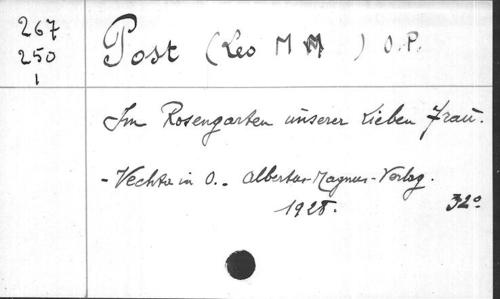 267
250
1
Post (Leo M M ) O.P.
Im Rosengarten unserer Lieben Frau.
- Vechta in O. - Albertus-Magnus-Verlag.
1928. 32°